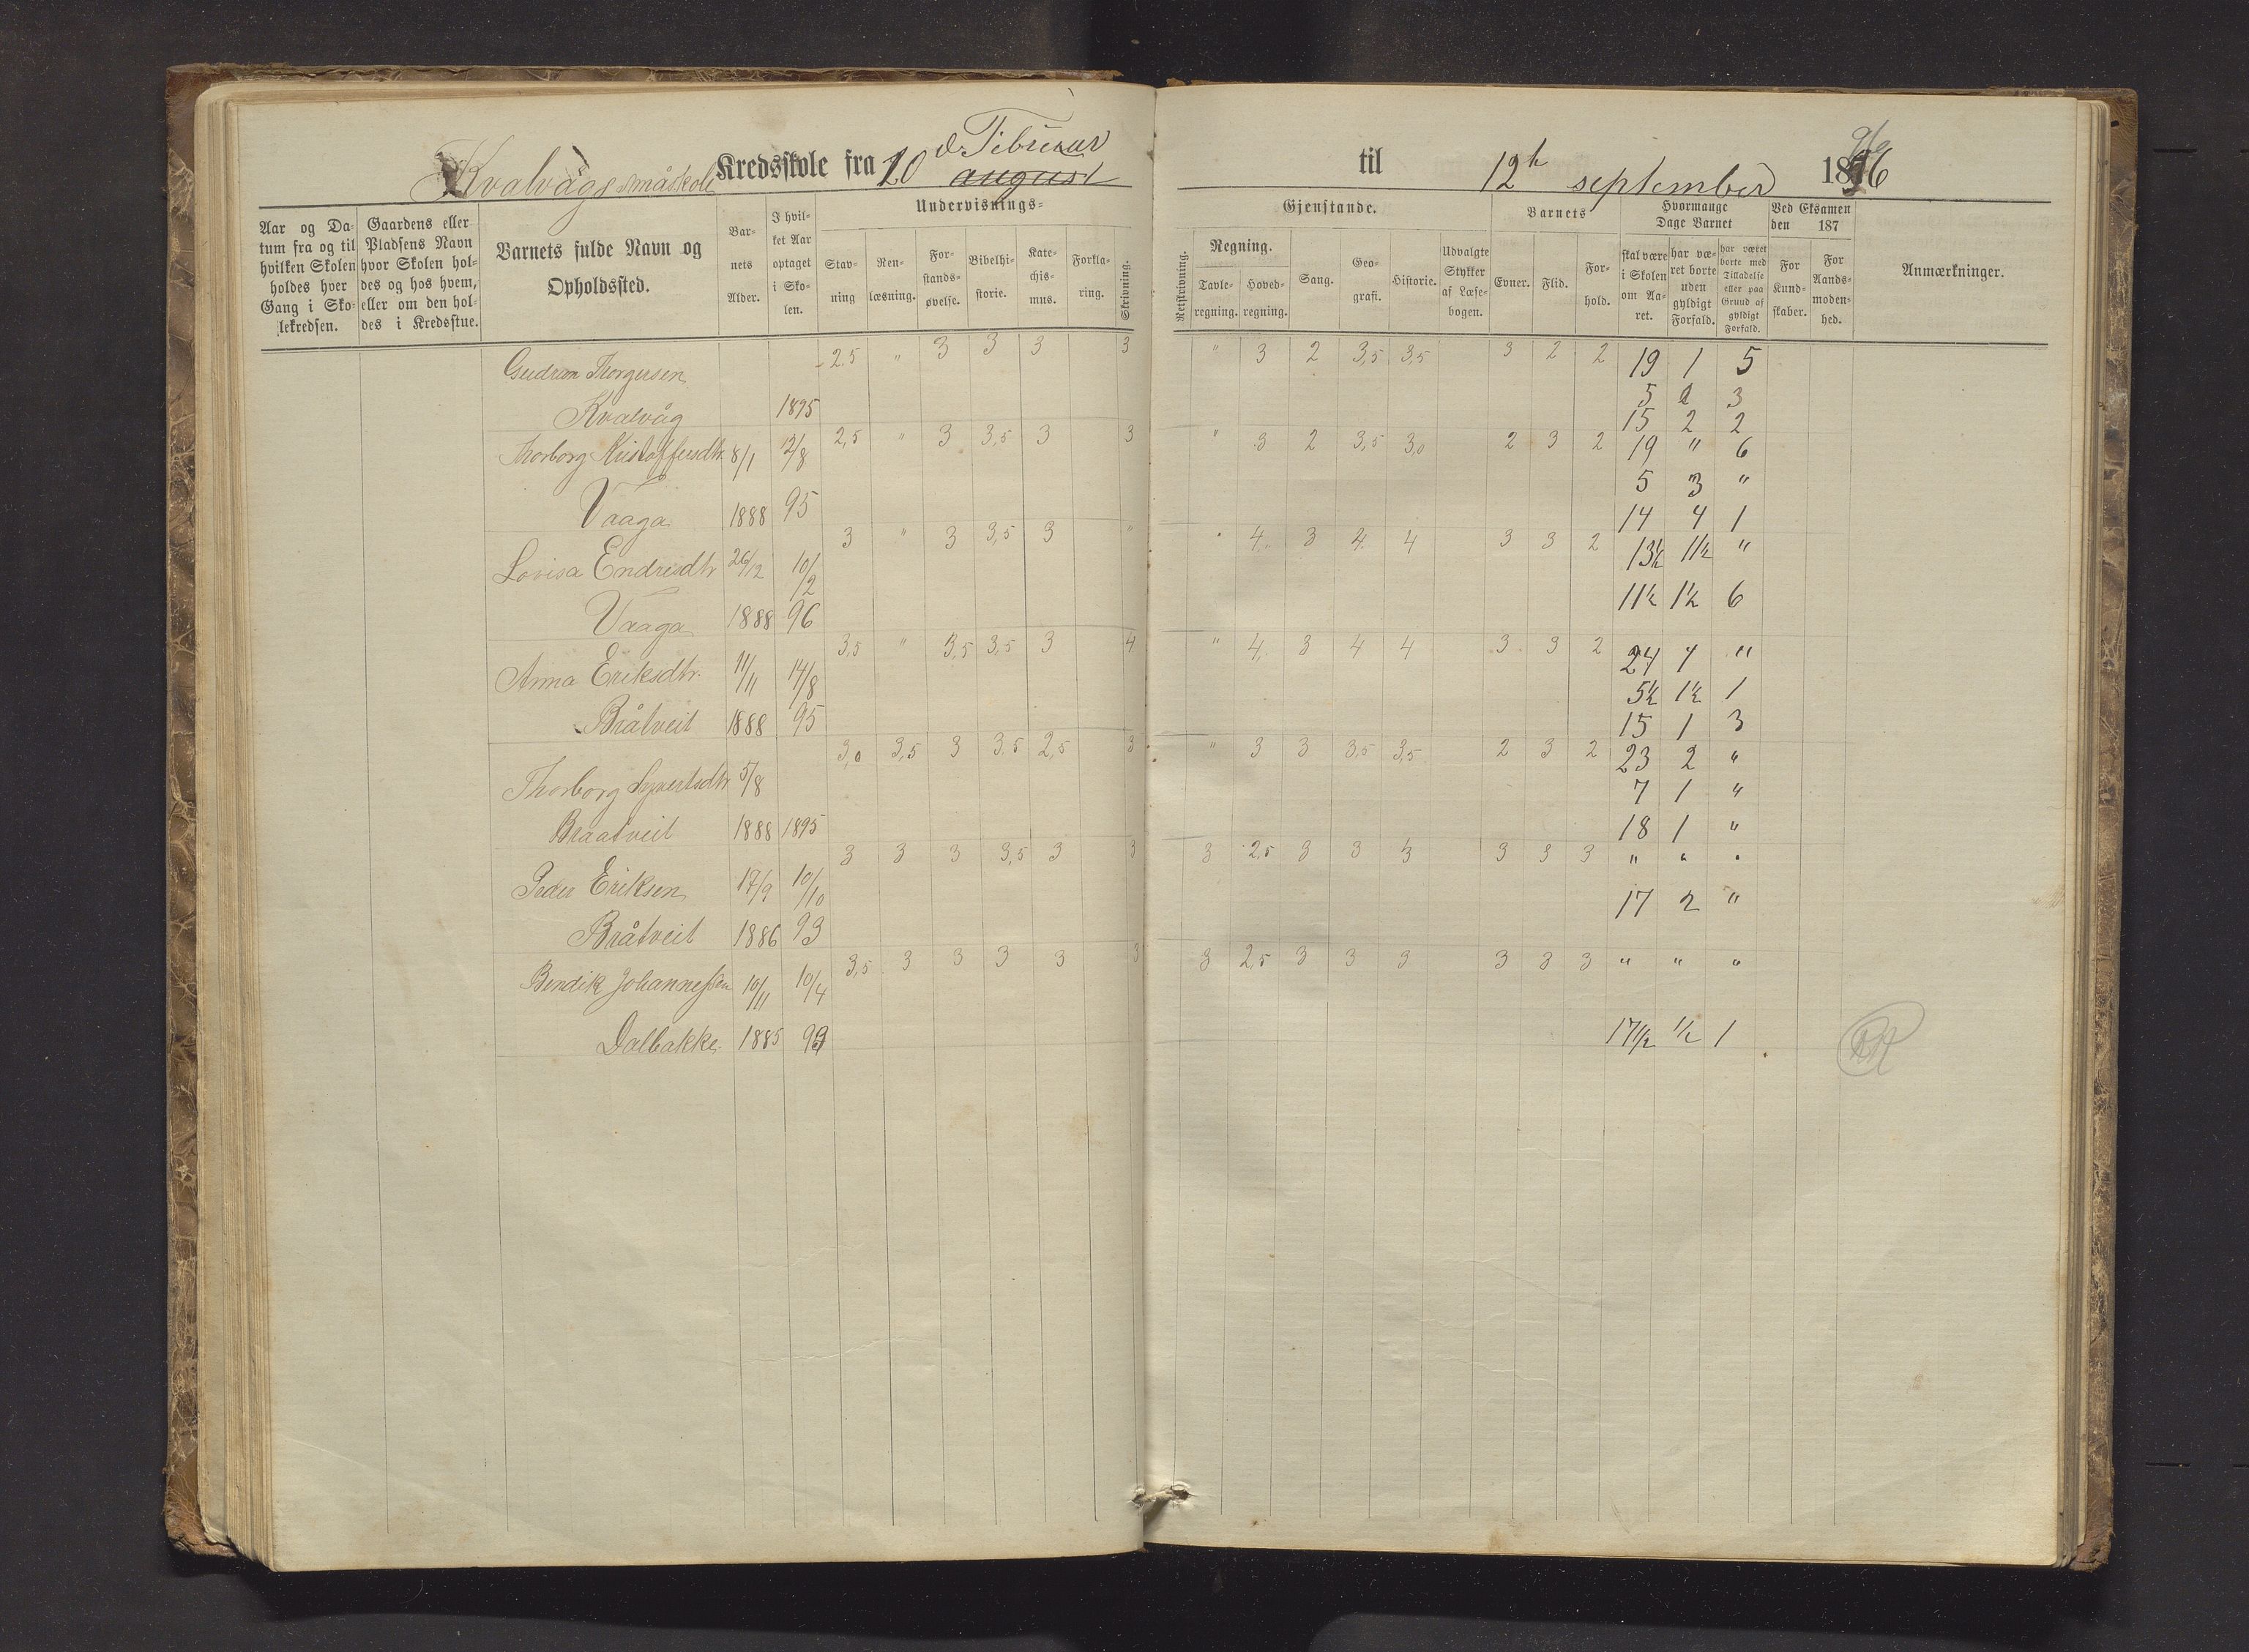 d. Februar
Kvalvågs småskole Kredsskole fra 10 august
til 12h september 1896
Undervisnings=
Gjenstande.
Barnets
Hvormange Dage Barnet
Ved Eksamen den 187
Aar og Da=
tum fra og til
hvilken Skolen
holdes hver
Gang i Sko=
lekredsen.
Gaardens eller
Pladsens Navn
hvor Skolen hol=
des og hos hvem,
eller om den hol=
des i Kredsstue.
Barnets fulde Navn og
Opholdssted.
Bar=
nets
Alder.
I hvil=
ket Aar
optaget
i Sko=
len.
Stav=
ning
Ren=
læsning.
For=
stands=
øvelse.
Bibelhi=
storie.
Kate=
chis=
mus.
Forkla=
ring.
Skrivning.
Retskrivning.
Regning.
Tavle=
regning.
Hoved=
regning.
Sang.
Geo=
grafi.
Historie.
Udvalgte
Stykker
af Læse=
bogen.
Evner.
Flid.
For=
hold.
skal være
i Skolen
om Aa=
ret.
har væ=
ret borte
uden
gyldigt
Forfald.
har været
borte med
Tilladelse
eller paa
Grund af
gyldigt
Forfald.
For
Kund=
skaber.
For
Aands=
moden=
hed.
Anmærkninger.
2.5 " 3 3 3 3 " 3 2 3,5 3,5 3 2 2 19 1 5
Gudrun Thorgersen
5 2 3
Kvalvåg 1895
15 2 2
2,5 " 3 3,5 3 3 " 3 2 3,5 3,0 2 3 2 19 " 6
Thorborg Kristoffersdtr. 8/1 12/8
5 3 "
Vaaga 1888 95
14 4 1
3 " 3 3,5 3 " " 4 3 4 4 3 3 2 13½ 1½ "
Lovisa Endresdtr 26/12 10/2
11½ 1½ 6
Vaaga 1888 96
3,5 " 3,5 3,5 3 4 " 4 3 4 4 3 3 2 24 1 "
Anna Eriksdtr. 11/11 14/8
5½ 1½ 1
Bråtveit 1888 95
15 1 3
3,0 3,5 3 3.5 2,5 3 " 3 3 3,5 3,5 2 3 2 23 2 "
Thorborg Syvertsdtr 5/8
7 1 "
Braatveit 1888 1895
18 1 "
3 3 3 3,5 3 3 3 2,5 3 3 3 3 3 3 " " "
Peder Eriksen 17/9 10/10
17 2 "
Bråtveit 1886 93
3,5 3 3 3 3 3 3 2,5 3 3 3 3 3 3 " " "
Bendik Johannessen 10/11 10/4
Dalbakke 1885 93
17½ ½ 1